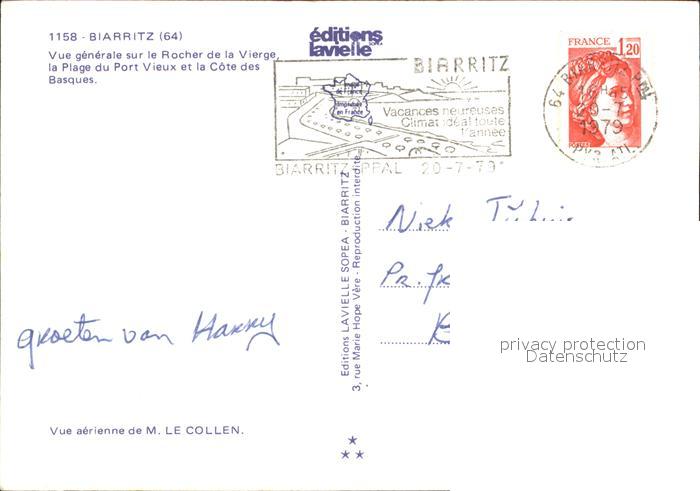 1158 - BIARRITZ (64)
Vue générale sur le Rocher de la Vierge,
la Plage du Port Vieux et la Côte des
Basques.
éditions
lavielle
BIARRITZ
Vacances heureuses
Climat idéal toute
l'année
BIARRITZ PPAL 20-7-79
Imprimée
en France
FRANCE 1,20
POSTES
64 BIARRITZ
1979
PYR ATL.
Editions LAVIELLE SOPEA - BIARRITZ
3, rue Marie Hope Vère - Reproduction interdite
Niek
Pr. Jr
K
groeten van Harry
privacy protection
Datenschutz
Vue aérienne de M. LE COLLEN.